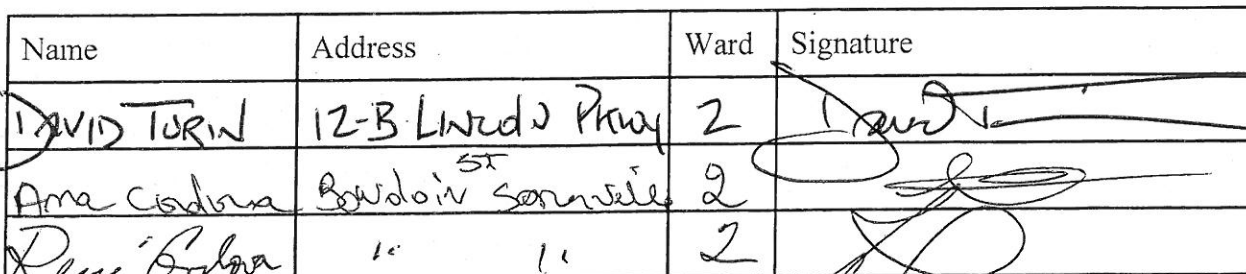 Name Address Ward Signature
DAVID TURIN 12-B LINCOLN PKWY 2 David T
Ana Cordova Bowdoin ST Somerville 2
René Cordova " " 2